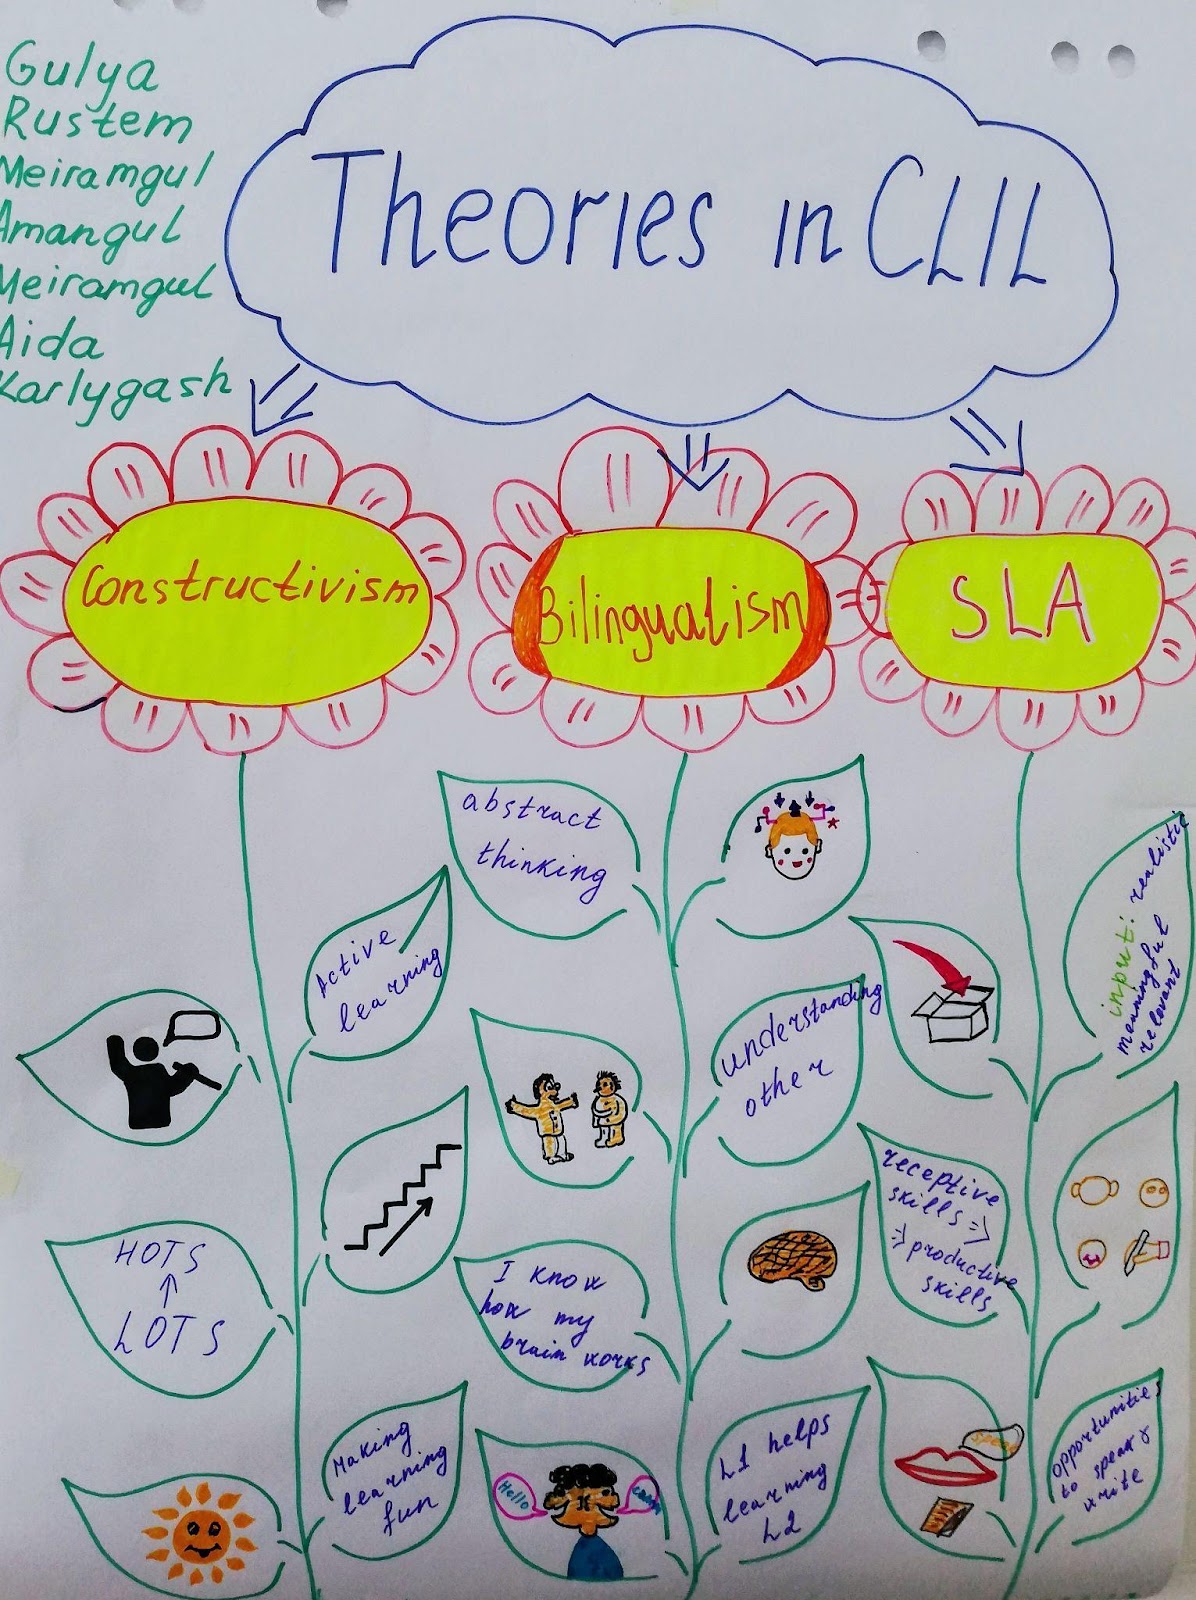 Gulya
Rustem
Meiramgul
Amangul
Meiramgul
Aida
Karlygash
Theories in CLIL
Constructivism
Bilingualism
SLA
Active
learning
HOTS
LOTS
Making
learning
fun
abstract
thinking
understanding
other
I know
how my
brain works
Hello
L1 helps
learning
L2
input: realistic
meaningful
relevant
receptive
skills =>
=> productive
skills
opportunities
to speak &
write